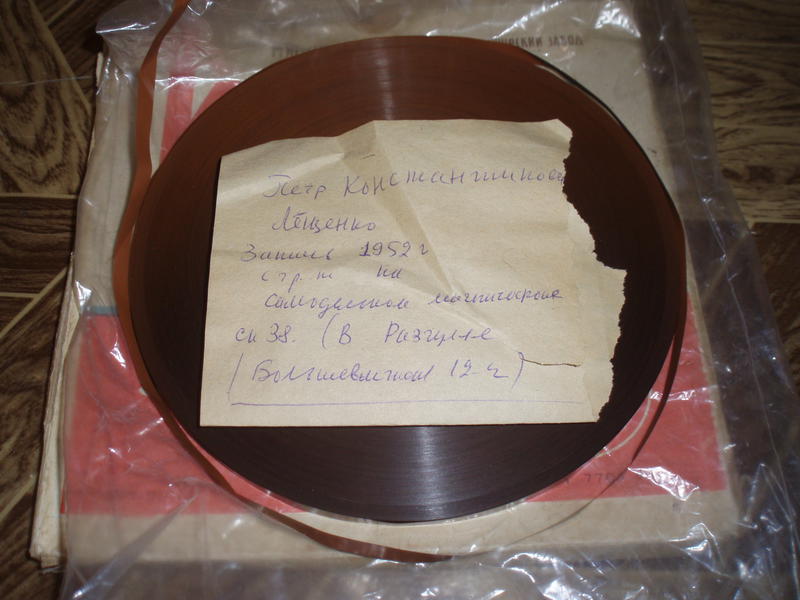 Петр Константинови
Лещенко
Запись 1952 г
на
самодельном магнитофоне
ск 38. (В Разгуле
(Большевистская 12 г)